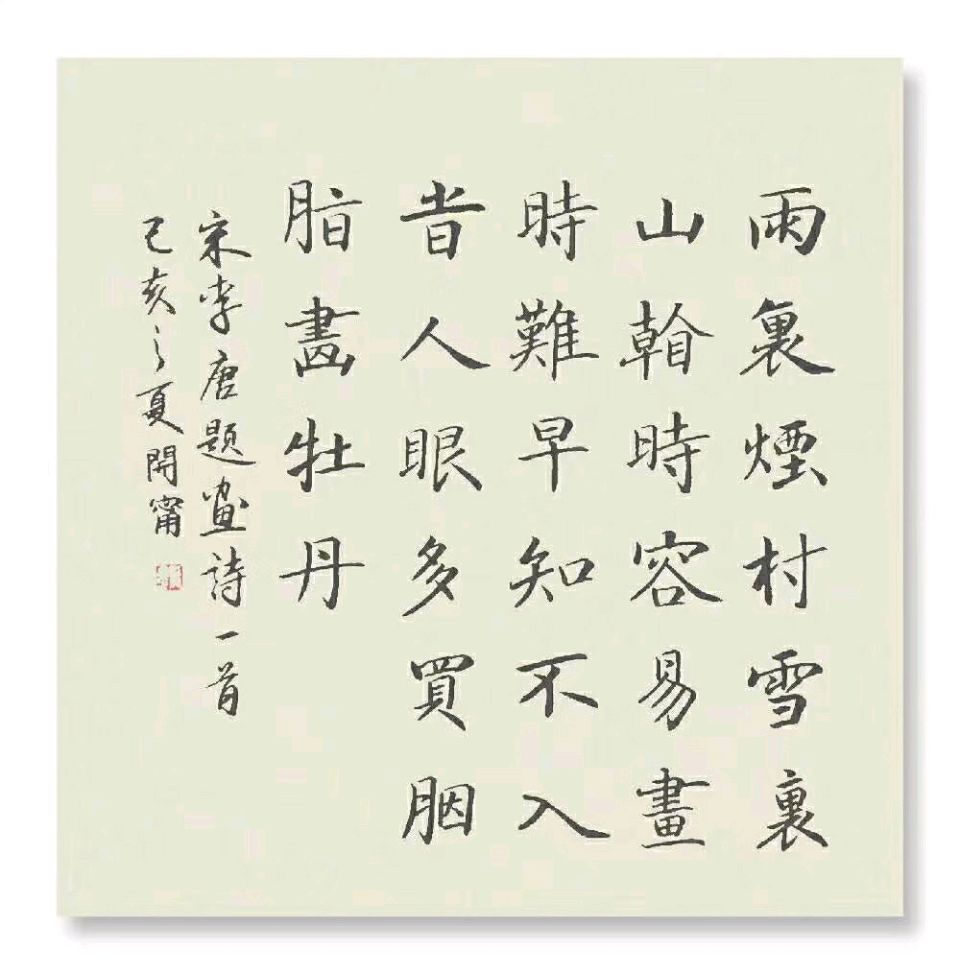 雨裏煙村雪裏
山看時容易畫
時難早知不入
旹人眼多買胭
脂畵牡丹
宋李唐題画詩一首
己亥之夏開甯